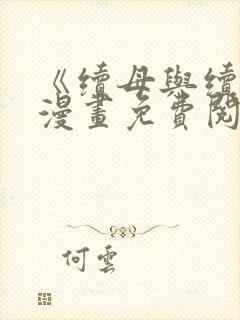 《續母與續
漫畫免費閱
何雲